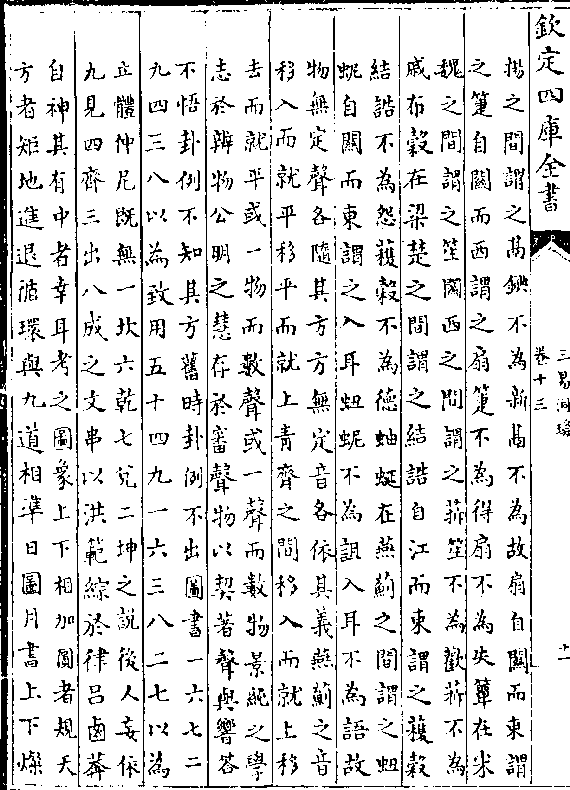 欽定四庫全書
三易洞璣
卷十三
十一
揚之間謂之鬲鉷不為新鬲不為故扇自關而東謂
之箑自關而西謂之扇箑不為得扇不為失簞在宋
魏之間謂之笙關西之間謂之䔑笙不為歡䔑不為
戚布穀在梁楚之間謂之結誥自江而東謂之穫穀
結誥不為怨穫穀不為德蚰蜒在燕薊之間謂之蚭
蚭自關而東謂之入耳蚭蚭不為訊入耳不為語故
物無定聲各隨其方方無定音各依其義燕薊之音
移入而就平移平而就上青齊之間移入而就上移
去而就平或一物而數聲或一聲而數物景純之學
志於辨物公明之慧存於審聲物以契著聲與響答
不悟卦例不知其方舊時卦例不出圖書一六七二
九四三八以為致用五十四九一六三八二七以為
立體仲尼既無一坎六乾七兌二坤之說後人妄依
九見四齊三出八成之文串以洪範綜於律呂鹵莽
自神其有中者幸耳考之圖象上下相加圓者規天
方者矩地進退循環與九道相準日圖月書上下燦